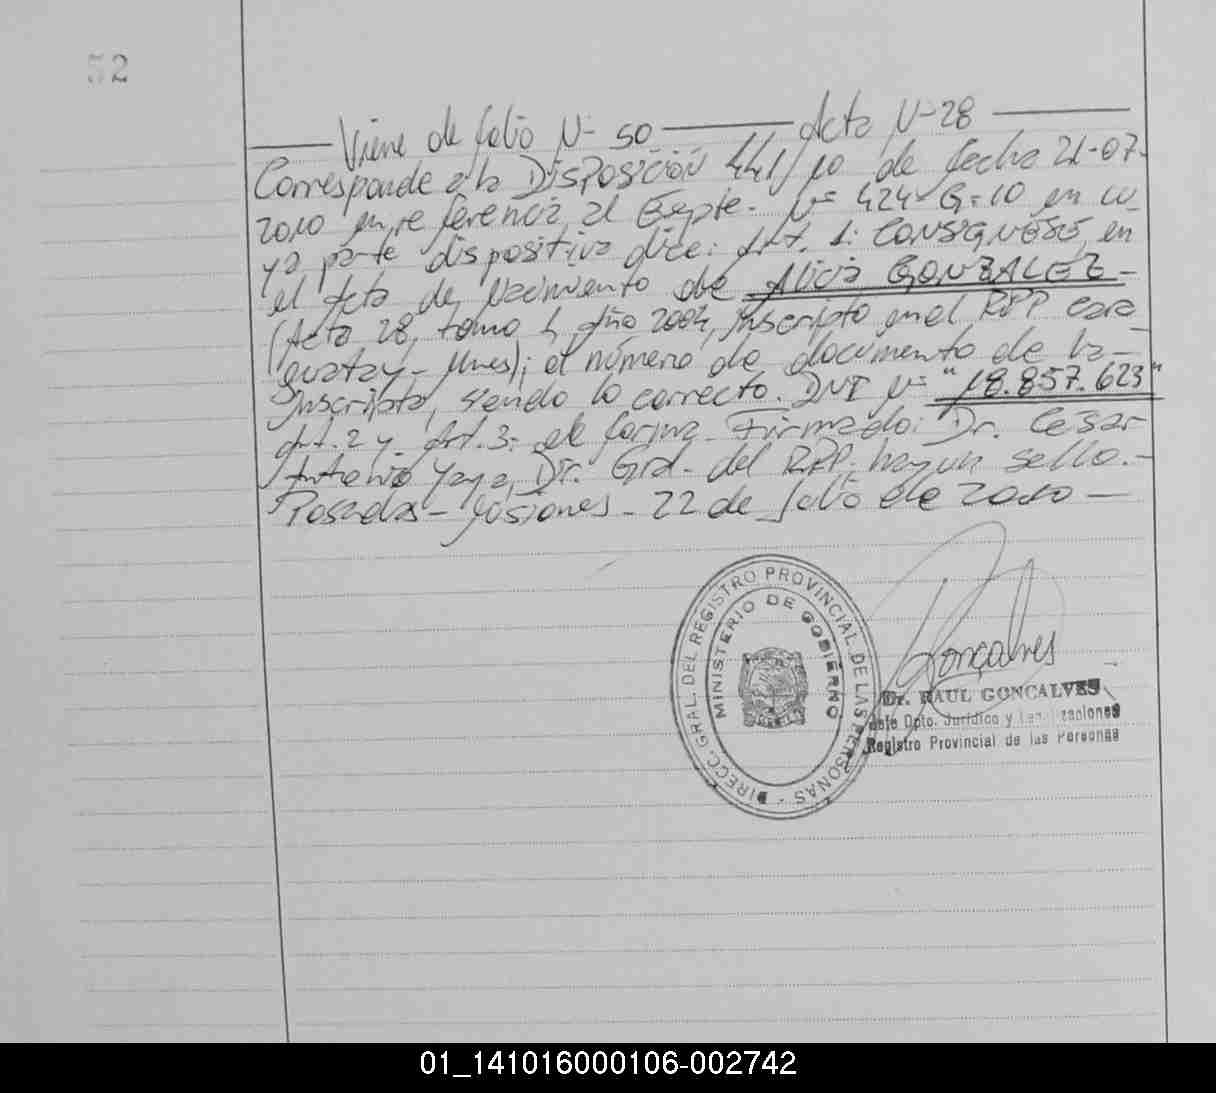 52
Viene de folio N- 50 — Acta N-28
Corresponde a la DISPOSICIÓN 441/10 de fecha 21-07-
2010 en referencia al Expte. N= 424-G=10 en cu-
ya parte dispositiva dice: Art. 1: CONSIGNESE, en
el Acta de Nacimiento de Alicia GONZALEZ-
(Acta 28, tomo 1, Año 2004, inscripto en el RPP cara
guatay- Mnes); el número de documento de la-
inscripta, siendo lo correcto. DNI N= "18.857.623"
Art. 2 y Art. 3- de forma. Firmado: Dr. Cesar
Antonio Yaya, Dir. Gral. del RPP. hay un sello.-
Posadas- Misiones- 22 de Julio de 2010 —
DIRECC. GRAL. DEL REGISTRO PROVINCIAL DE LAS PERSONAS -
MINISTERIO DE GOBIERNO
Gonçalves
Dr. RAUL GONCALVES
Jefe Dpto. Jurídico y
Registro Provincial de las Personas
01_141016000106-002742